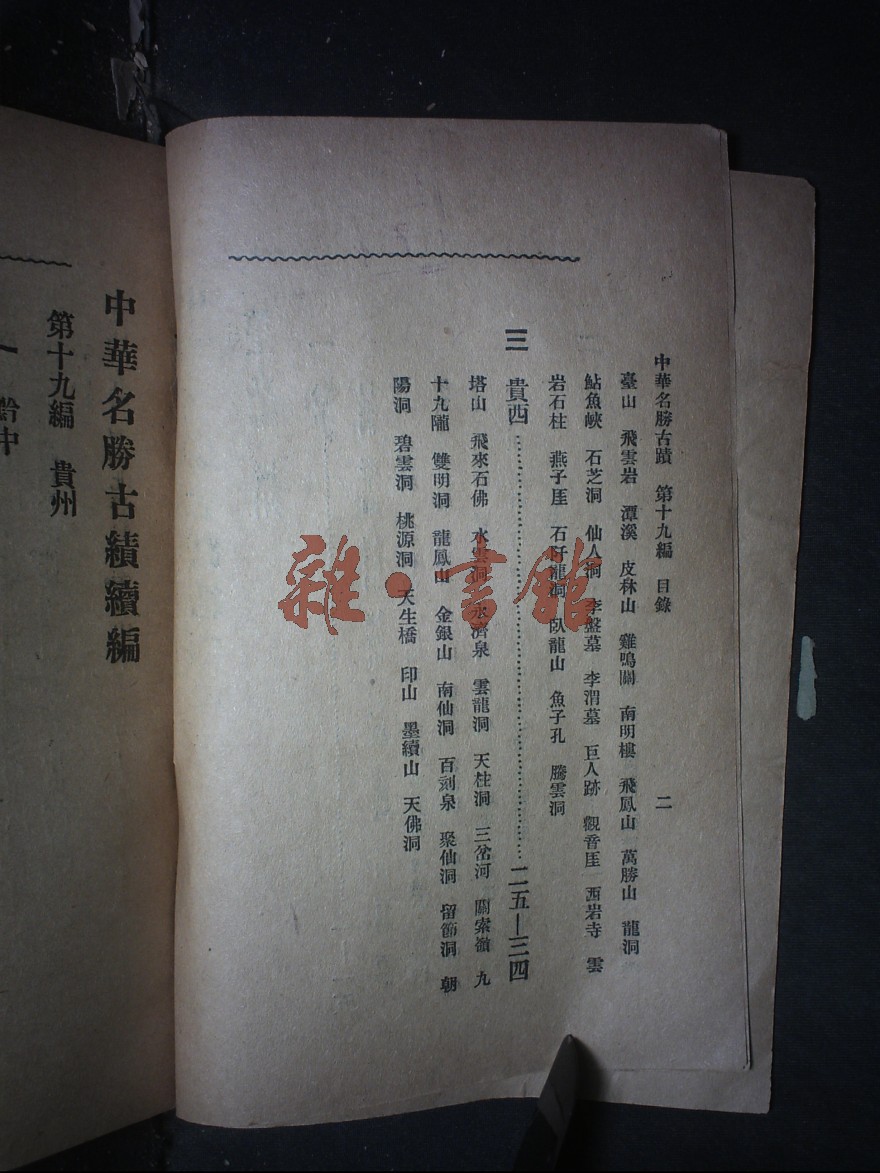 中華名勝古蹟　第十九編　目錄　二
臺山　飛雲岩　潭溪　皮林山　雞鳴關　南明樓　飛鳳山　萬勝山　龍洞
鮎魚峽　石芝洞　仙人洞　李盤墓　李渭墓　巨人跡　觀音厓　西岩寺　雲
岩石柱　燕子厓　石　龍洞　臥龍山　魚子孔　騰雲洞
三　貴西……二五—三四
塔山　飛來石佛　水雲洞　永濟泉　雲龍洞　天柱洞　三岔河　關索嶺　九
十九隴　雙明洞　龍鳳山　金銀山　南仙洞　百刻泉　聚仙洞　留節洞　朝
陽洞　碧雲洞　桃源洞　天生橋　印山　墨續山　天佛洞
中華名勝古績續編
第十九編　貴州
一　黔中
雜·書館